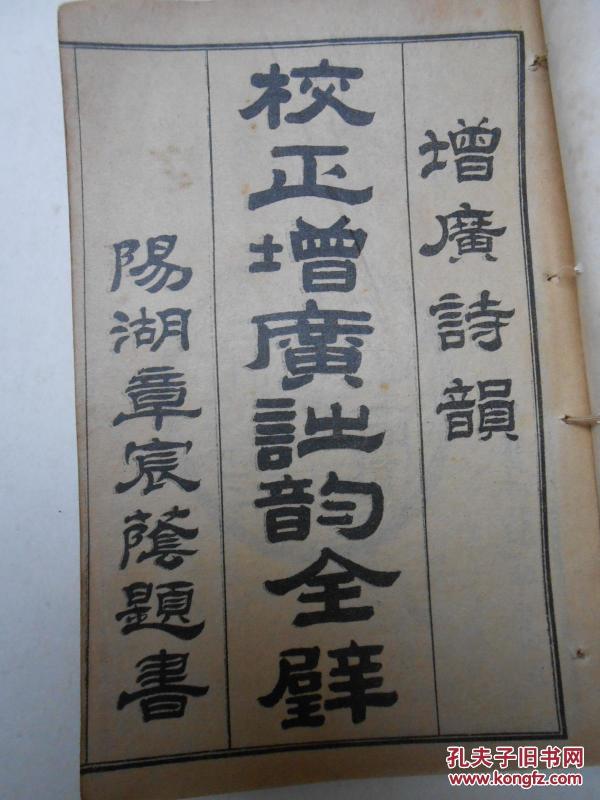 增廣詩韻
校正增廣詩韵全璧
陽湖章宸蔭題書
孔夫子旧书网
www.kongfz.com